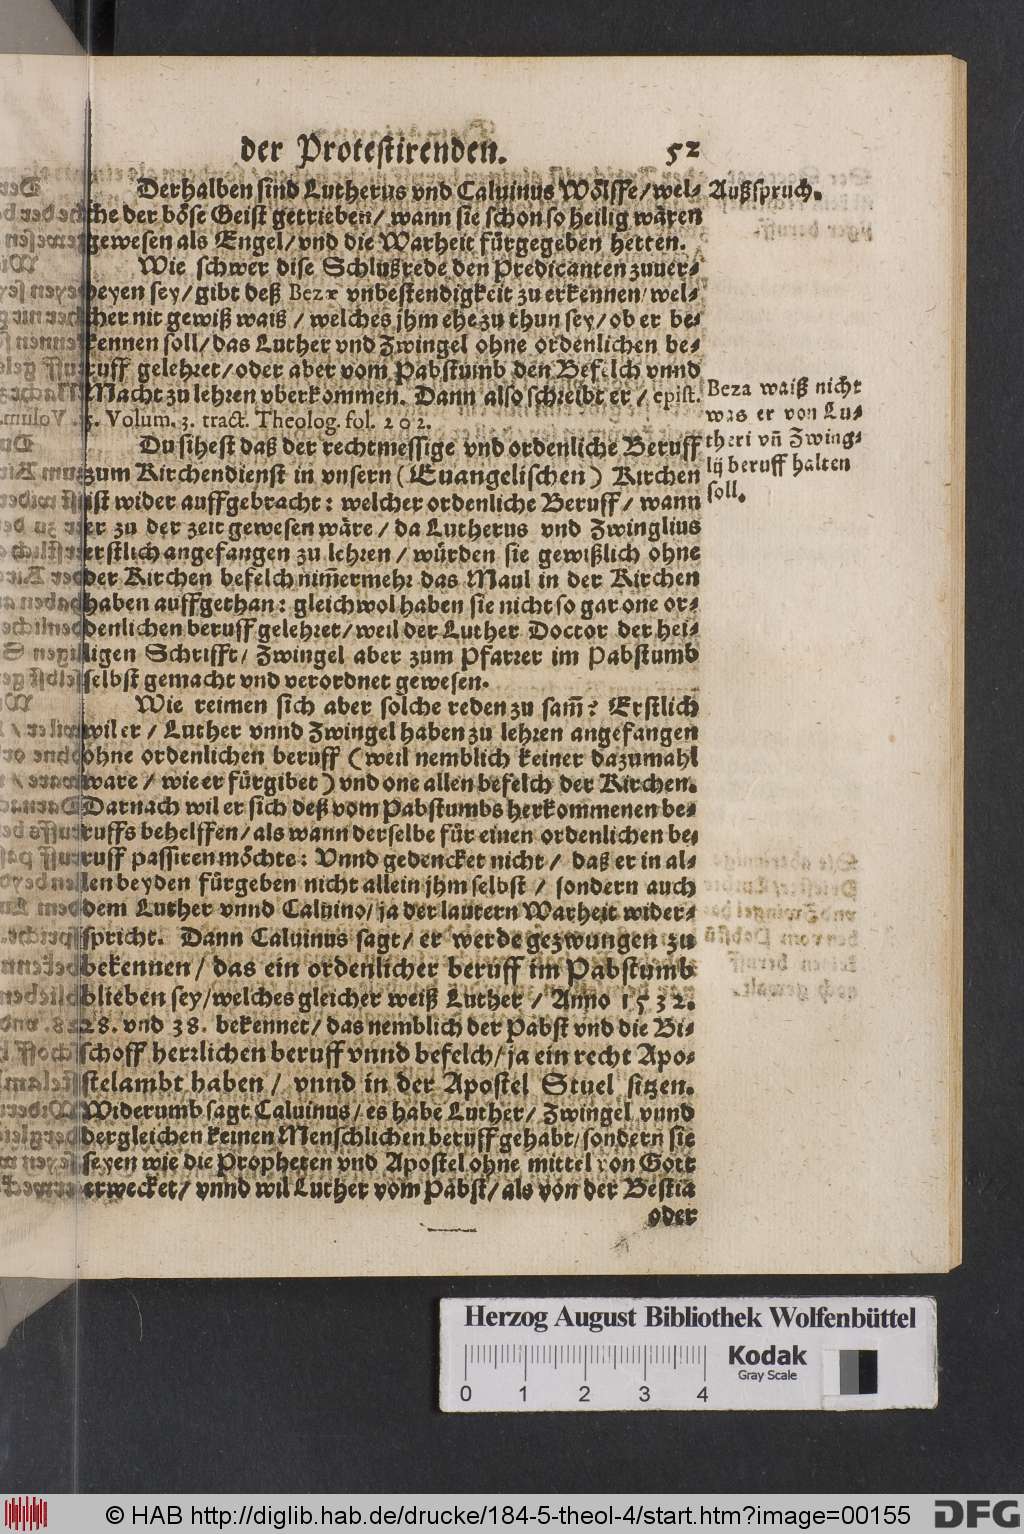 der Protestirenden. 52
Derhalben sind Lutherus vnd Caluinus Wölffe/ wel-
che der böse Geist getrieben/ wann sie schon so heilig wären
gewesen als Engel/ vnd die Warheit fürgegeben hetten.
Außspruch.
Wie schwer dise Schlußrede den Predicanten zuuer-
deyen sey/ gibt deß Bezæ vnbestendigkeit zu erkennen/ wel-
cher nit gewiß waiß / welches jhm ehe zu thun sey/ ob er be-
kennen soll/ das Luther vnd Zwingel ohne ordenlichen be-
ruff gelehret/ oder aber vom Pabstumb den Befelch vnnd
Macht zu lehren vberkommen. Dann also schreibt er / epist.
5. Volum. 3. tract. Theolog. fol. 202.
Beza waiß nicht
was er von Lu-
theri vñ Zwing-
lij beruff halten
soll.
Du sihest daß der rechtmessige vnd ordenliche Beruff
zum Kirchendienst in vnsern ( Euangelischen ) Kirchen
ist wider auffgebracht: welcher ordenliche Beruff / wann
er zu der zeit gewesen wäre / da Lutherus vnd Zwinglius
erstlich angefangen zu lehren / würden sie gewißlich ohne
der Kirchen befelch nim̄ermehr das Maul in der Kirchen
haben auffgethan: gleichwol haben sie nicht so gar one or-
denlichen beruff gelehret/ weil der Luther Doctor der hei-
ligen Schrifft/ Zwingel aber zum Pfarrer im Pabstumb
selbst gemacht vnd verordnet gewesen.
Wie reimen sich aber solche reden zu sam̄? Erstlich
wil er / Luther vnnd Zwingel haben zu lehren angefangen
ohne ordenlichen beruff ( weil nemblich keiner dazumahl
ware / wie er fürgibet ) vnd one allen befelch der Kirchen.
Darnach wil er sich deß vom Pabstumbs herkommenen be-
ruffs behelffen/ als wann derselbe für einen ordenlichen be-
ruff passiren möchte: Vnnd gedencket nicht / daß er in al-
len beyden fürgeben nicht allein jhm selbst / sondern auch
dem Luther vnnd Caluino/ ja der lautern Warheit wider-
spricht. Dann Caluinus sagt/ er werde gezwungen zu
bekennen / das ein ordenlicher beruff im Pabstumb
blieben sey/ welches gleicher weiß Luther / Anno 1532.
28. vnd 38. bekennet/ das nemblich der Pabst vnd die Bi-
schoff herrlichen beruff vnnd befelch/ ja ein recht Apo-
stelambt haben / vnnd in der Apostel Stuel sitzen.
Widerumb sagt Caluinus/ es habe Luther/ Zwingel vnnd
dergleichen keinen Menschlichen beruff gehabt/ sondern sie
seyen wie die Propheten vnd Apostel ohne mittel von Gott
erwecket/ vnnd wil Luther vom Pabst/ als von der Bestia
oder
Herzog August Bibliothek Wolfenbüttel
Kodak
Gray Scale
0 1 2 3 4
© HAB http://diglib.hab.de/drucke/184-5-theol-4/start.htm?image=00155
DFG